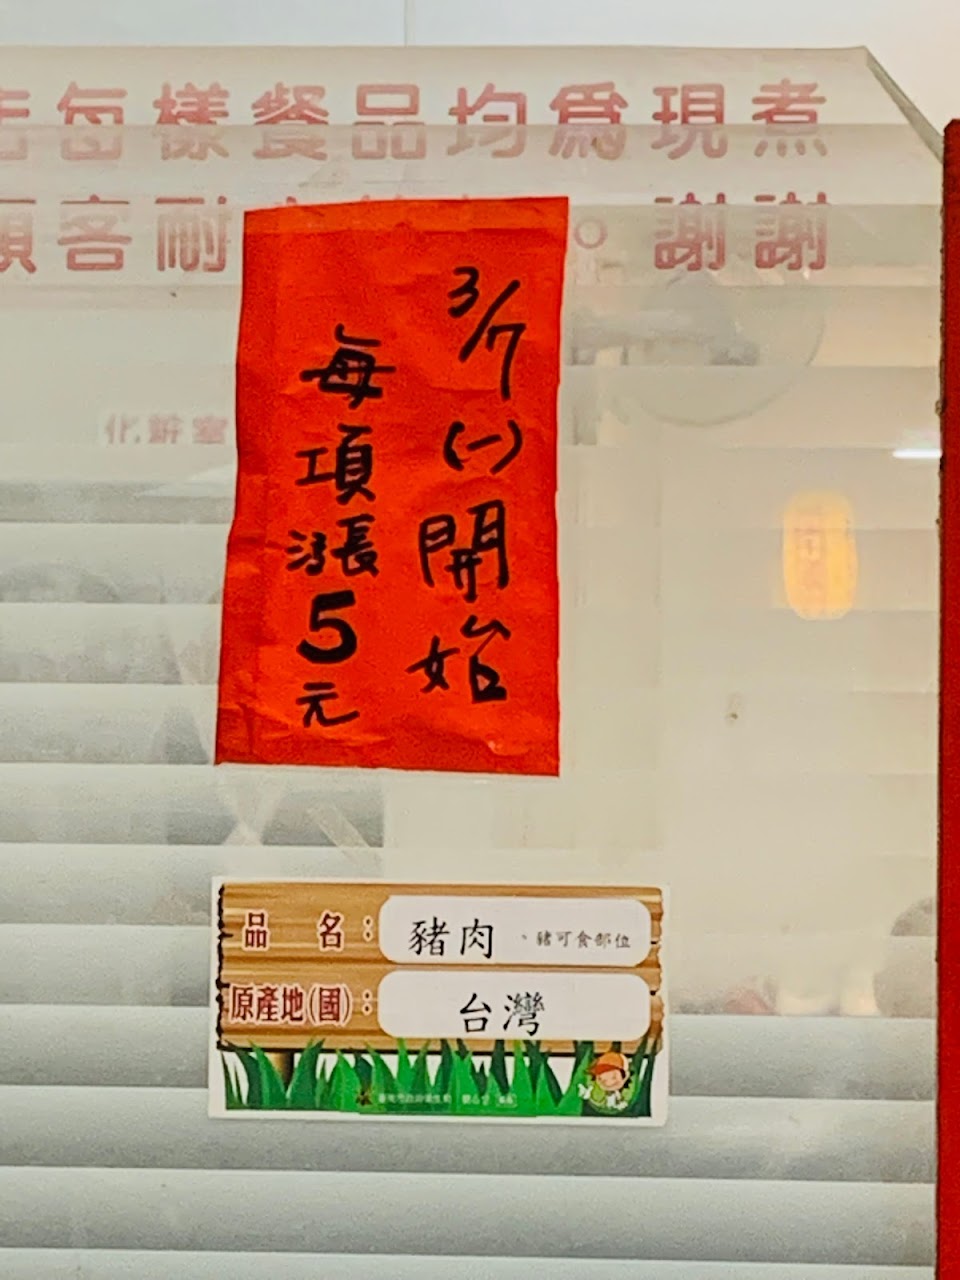 每樣餐品均為現煮
客耐
謝謝
3/7(一)開始
每項漲5元
化粧室
品 名：豬肉、豬可食部位
原產地(國)：台灣